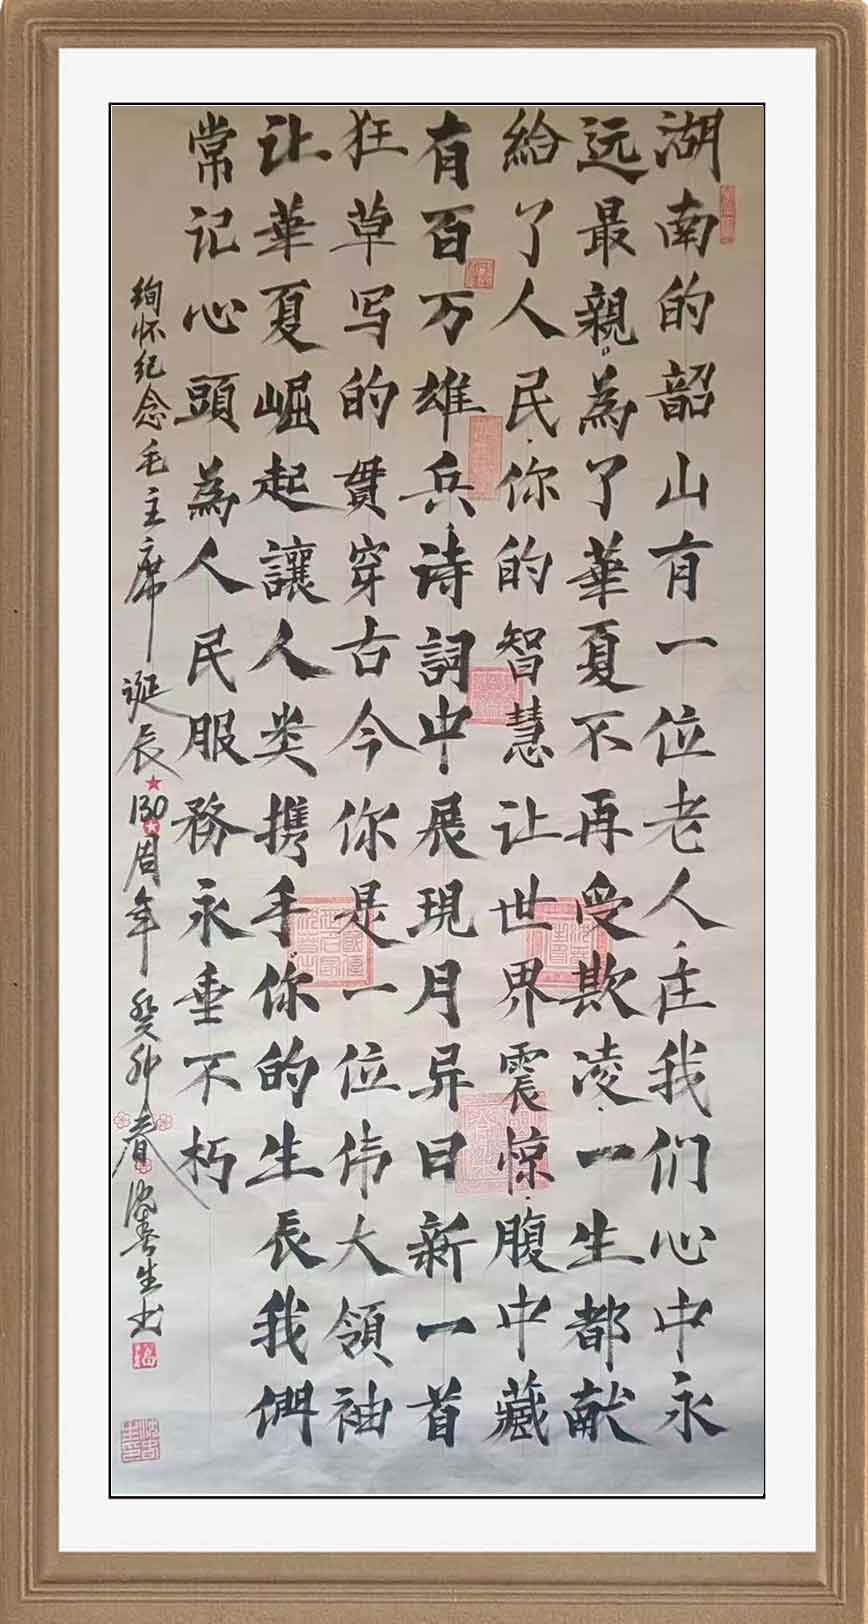 湖南的韶山有一位老人,在我们心中永
远最親。為了華夏不再受欺凌,一生都献
給了人民,你的智慧让世界震惊,腹中藏
有百万雄兵,诗詞中展現月异日新一首
狂草写的贯穿古今你是一位伟大領袖
让華夏崛起讓人类携手,你的生長我們
常记心頭為人民服務永垂不朽
絢怀纪念毛主席诞辰130周年 癸卯春 生书
福